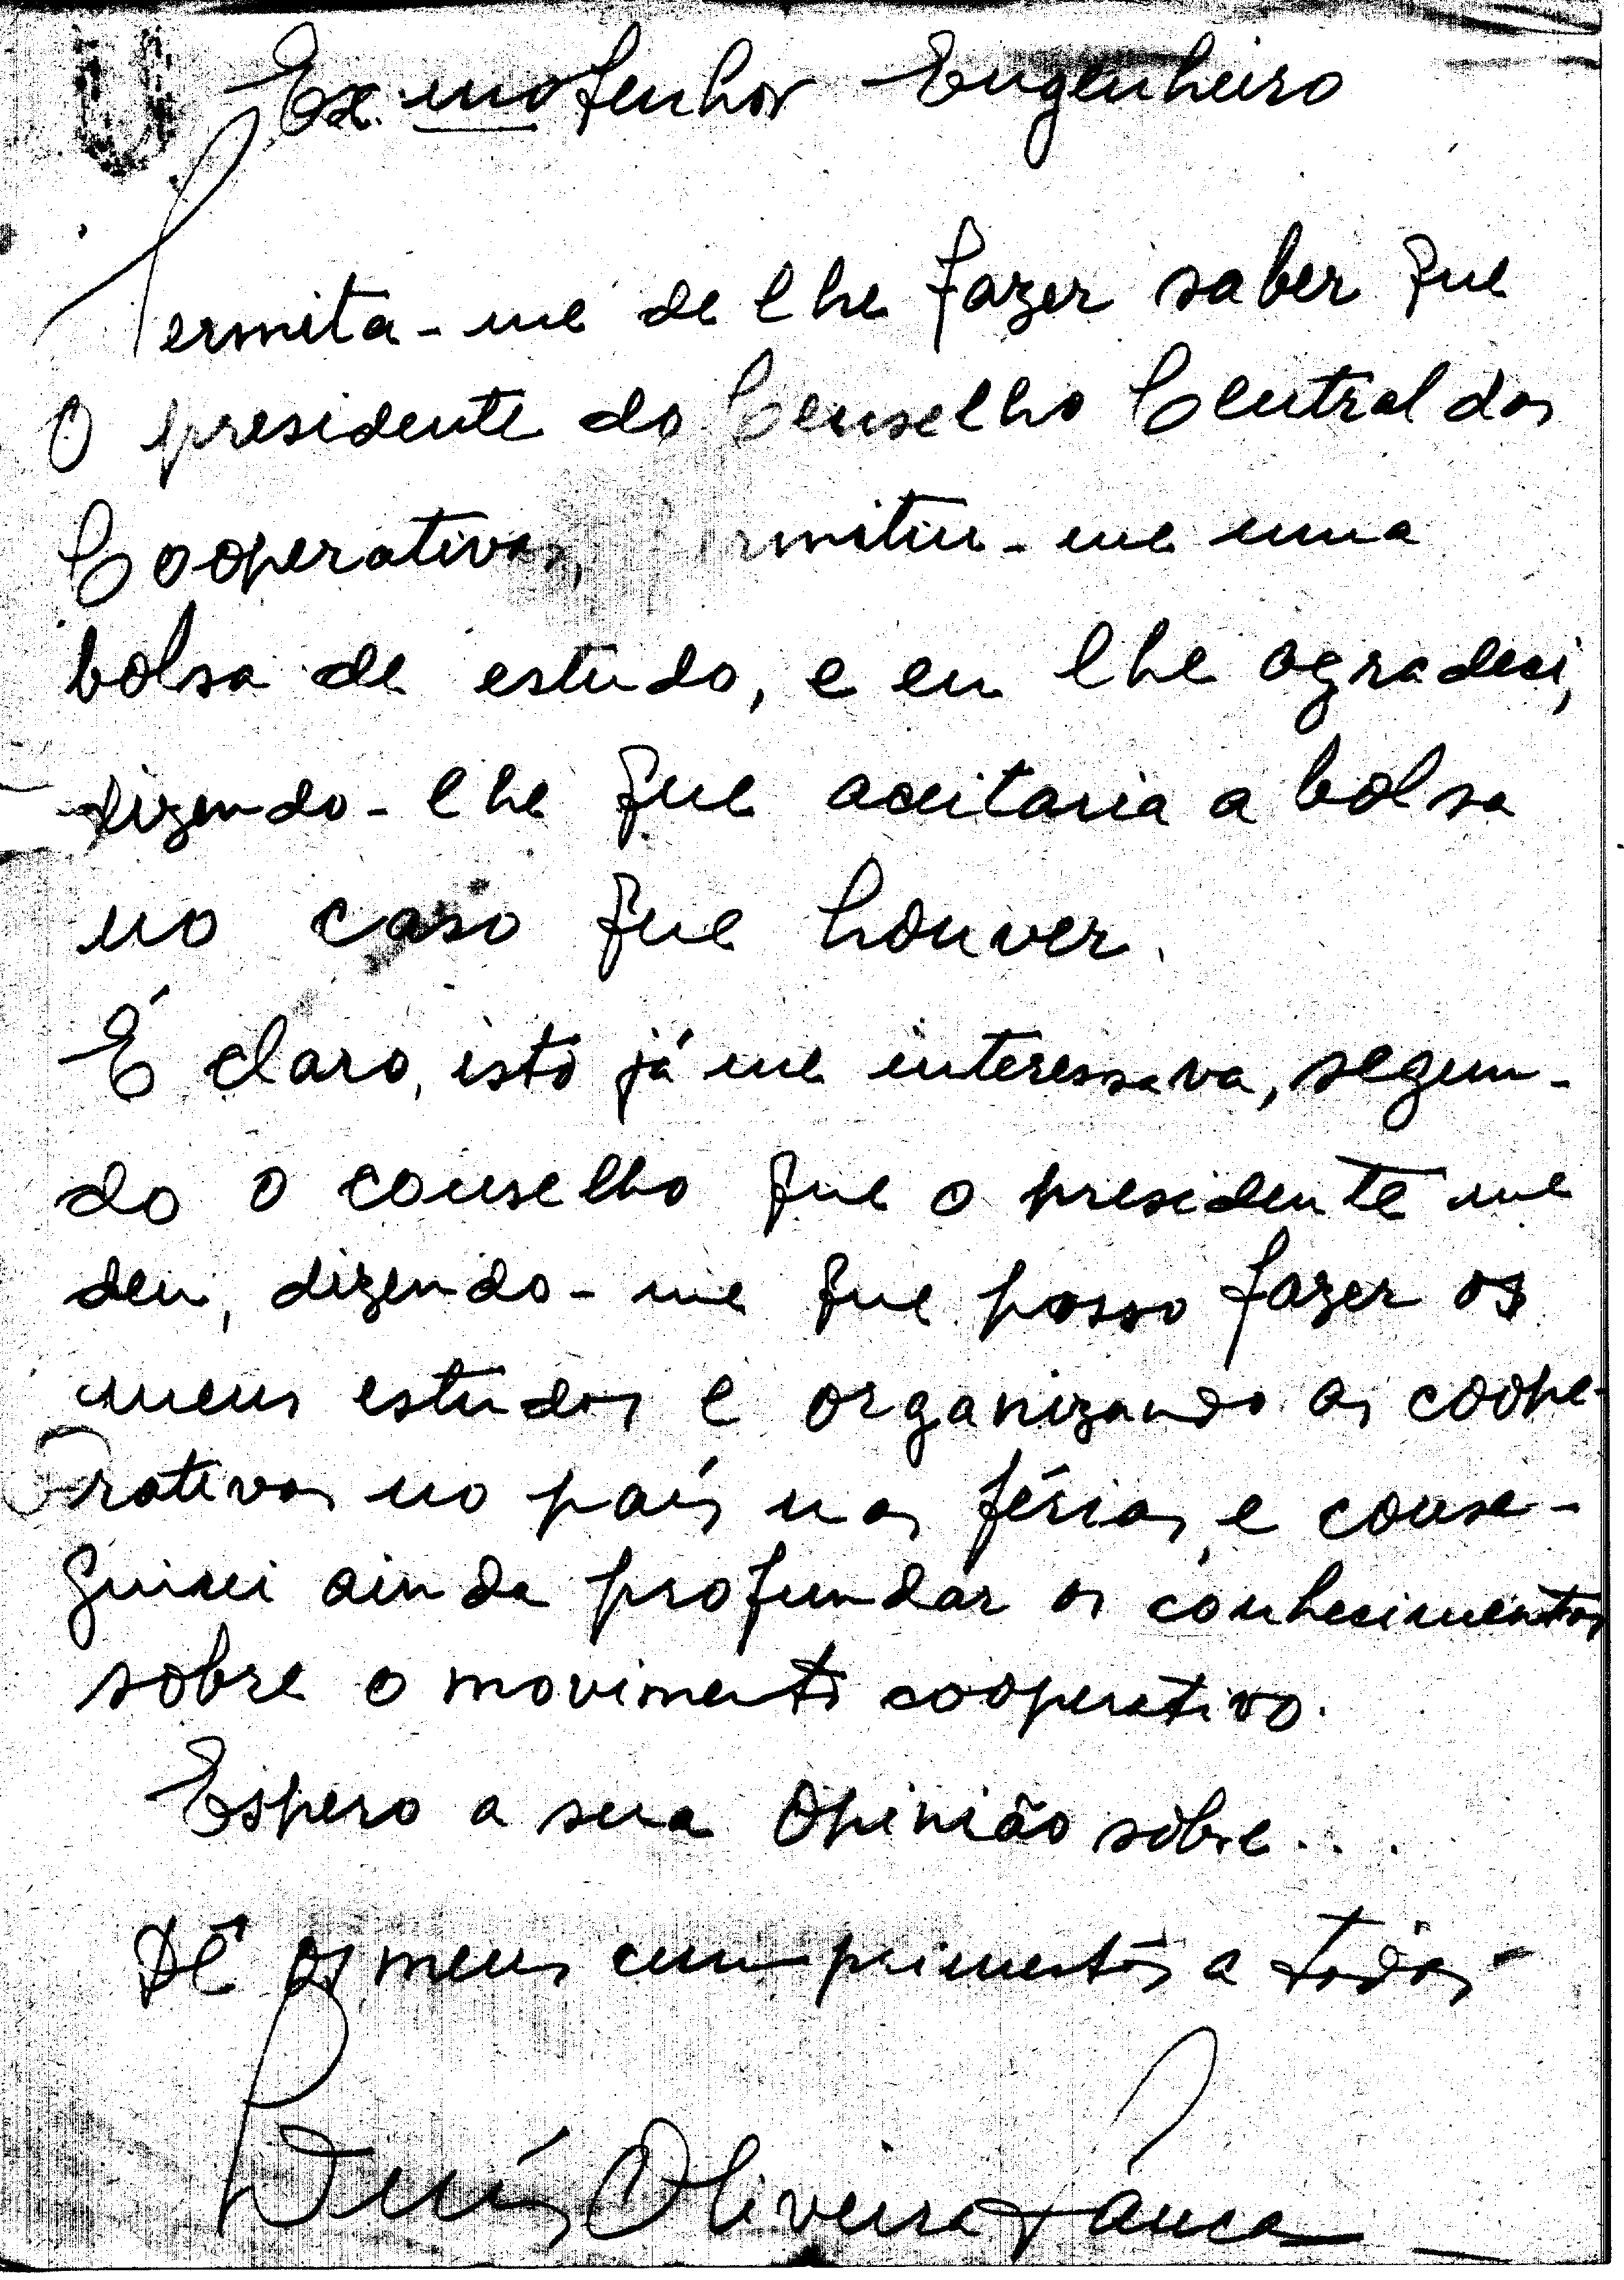 Ex.mo Senhor Engenheiro
Permita-me de lhe fazer saber que
O presidente do Conselho Central das
Cooperativas, permitiu-me uma
bolsa de estudo, e eu lhe agradeci,
dizendo-lhe que aceitaria a bolsa
no caso que houver.
É claro, isto já me interessava, segun-
do o conselho que o presidente me
deu, dizendo-me que posso fazer os
meus estudos e organizando as coope-
rativas no país nas férias, e conse-
guirei ainda profundar os conhecimentos
sobre o movimento cooperativo.
Espero a sua Opinião sôbre...
Dê os meus cumprimentos a todos-
Luís Oliveira Panca